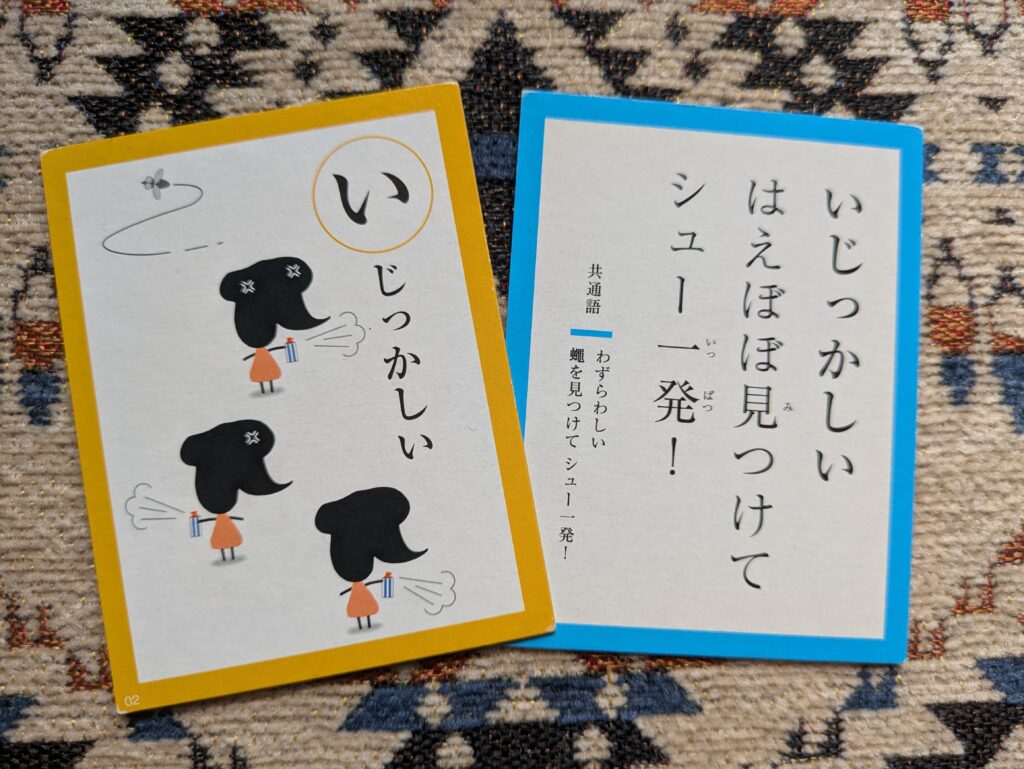 いじっかしい
02
いじっかしい
はえぼぼ見つけて
シュー一発！
いっぱつ
み
共通語
わずらわしい
蠅を見つけて シュー一発！